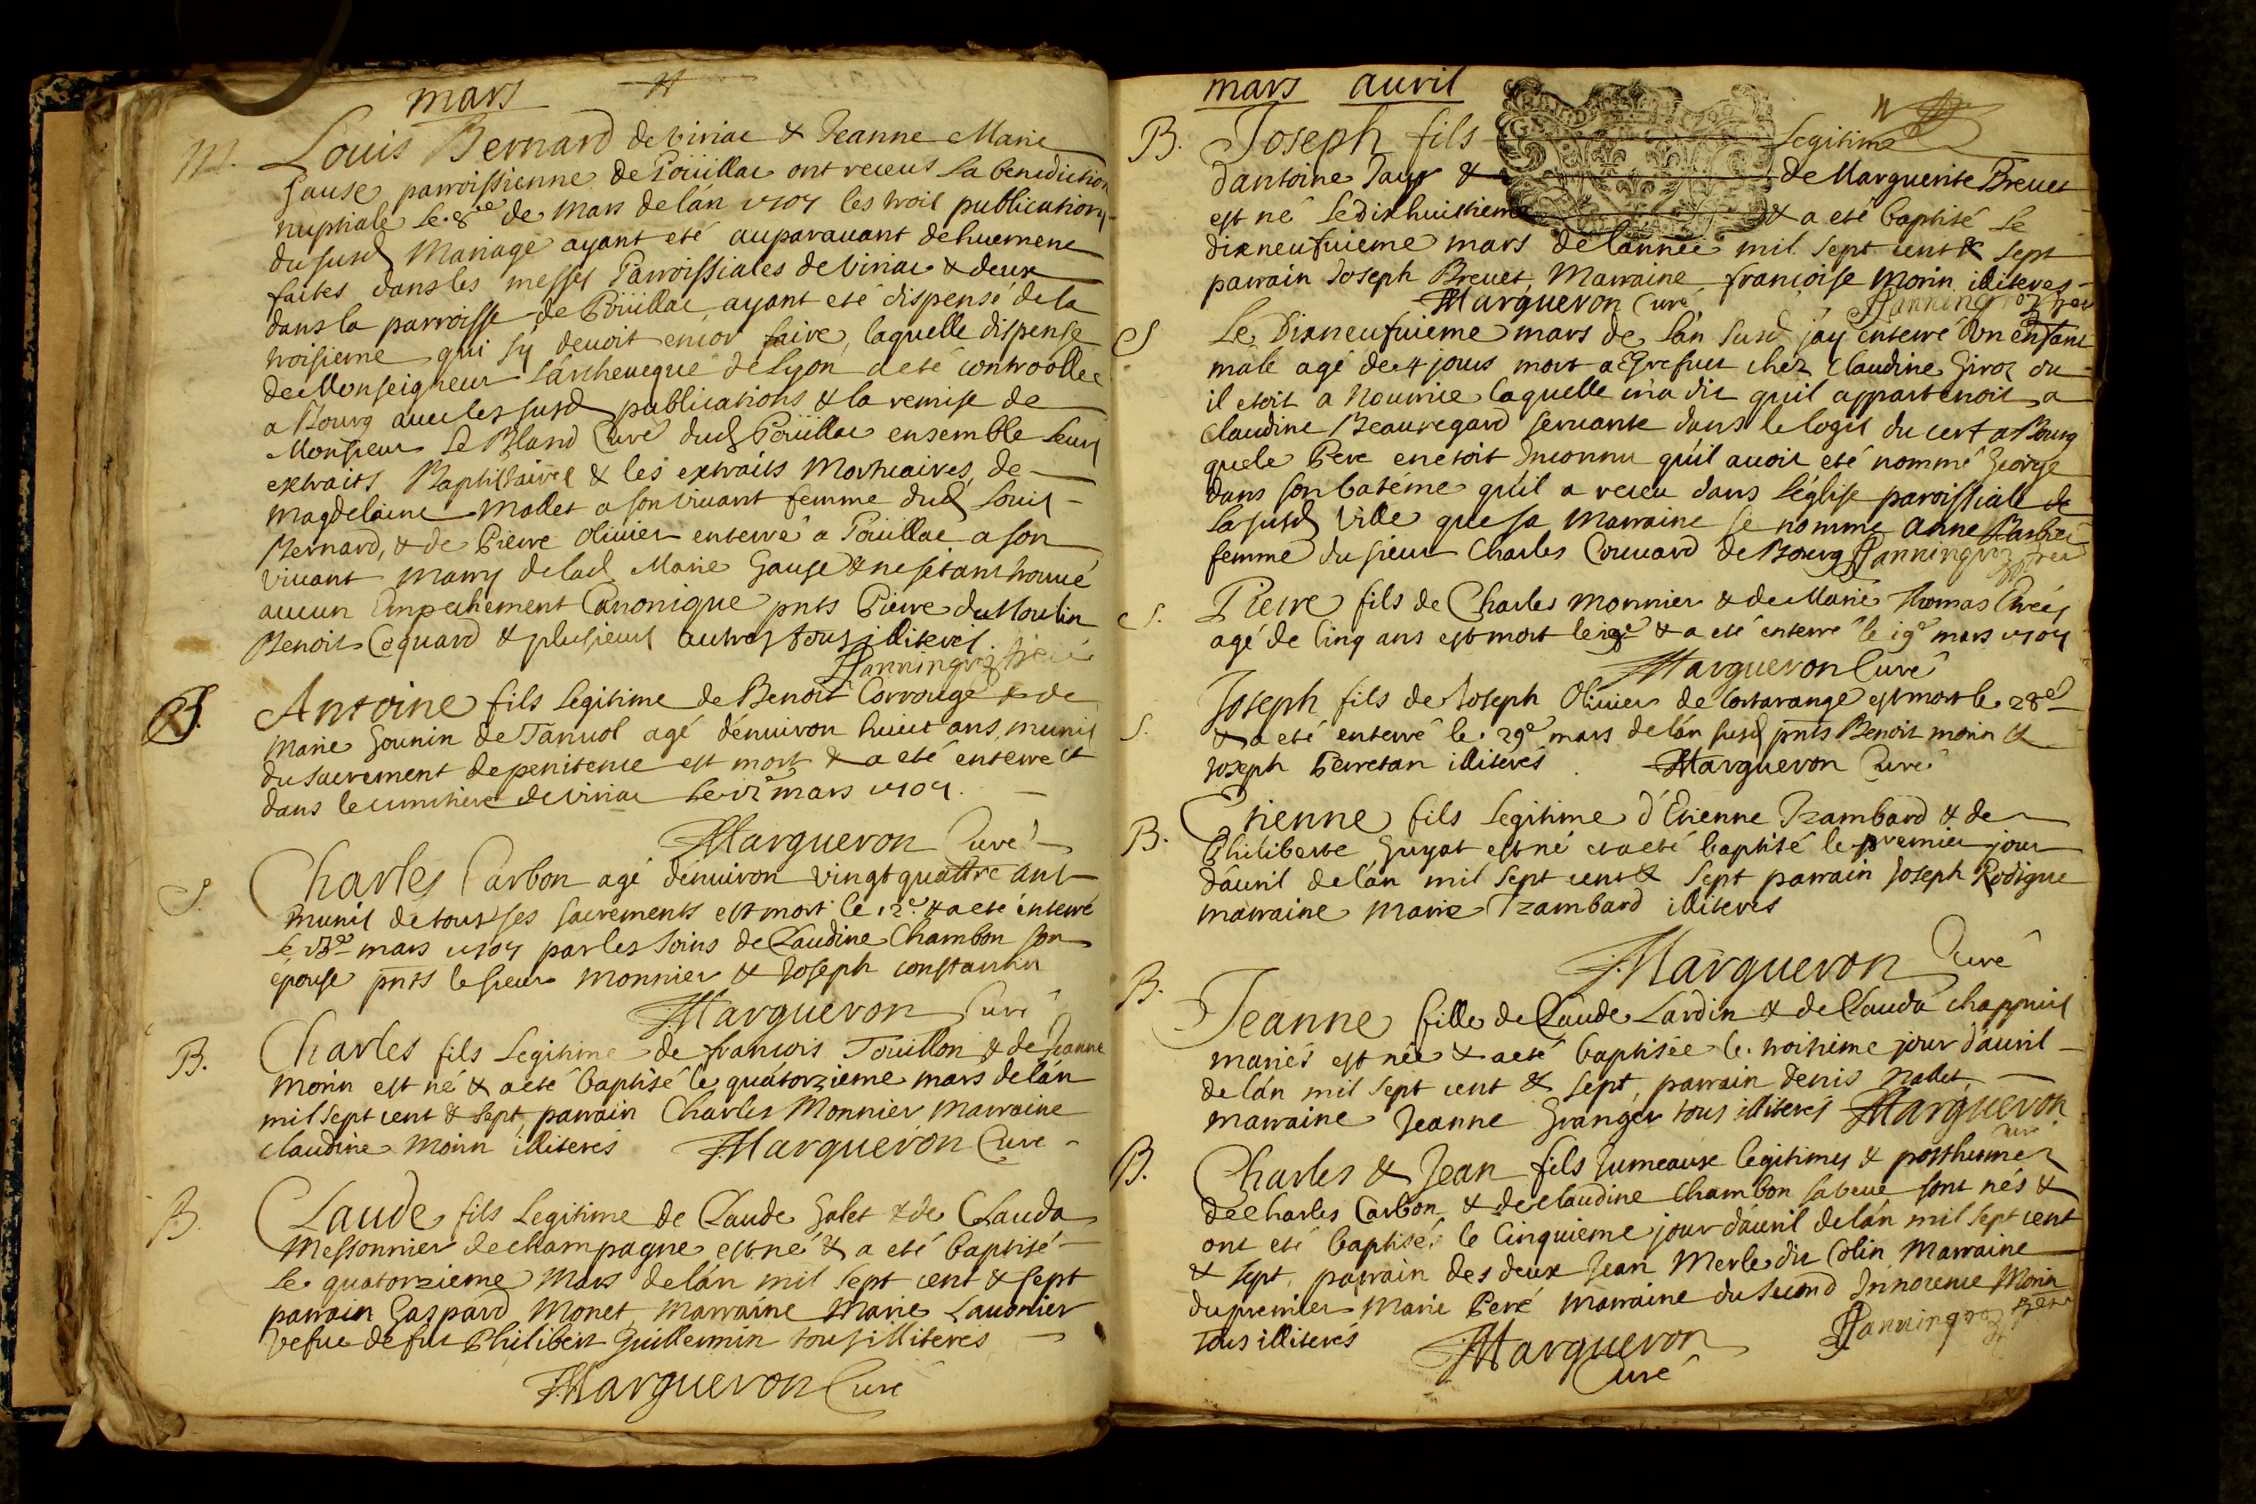 mars
M. Louis Bernard de Viriac & Jeanne Marie
Gause parroissienne de Poüillac ont receus la benediction
nuptiale le 8e de Mars de lán 1707 les trois publications
du susd Mariage ayant eté auparavant dehuement
faites dans les messes Parroissiales de Viriac & deux
dans la parroisse de Poüillac, ayant eté dispensé de la
troisieme qui sy devoit encor faire, laquelle dispense
de Monseigneur L'archeveque de Lyon a eté controollee
a Bourg avec les susd publications & la remise de
Monsieur Le Bland Curé dud Poüillac ensemble leurs
extraits Baptistaires & les extraits Mortuaires de
Magdelaine Mallet a son vivant femme dud Louis
Bernard, & de Pierre Olivier enterré a Poüillac a son
vivant marry de lad Marie Gause & ne sétant trouvé
aucun Empechement Canonique pnts Pierre du Moulin
Benoit Coquard & plusieurs autres tous illiterés.
S. Antoine fils legitime de Benoit Corrouge & de
Marie Gounin de Tanvol agé dénviron huict ans, munis
du sacrement de penitence est mort & a eté enterré
dans le cimetiere de Viriac le mars 1707.
Margueron Curé
S. Charles Carbon agé dénviron vingt quattre ans
munis de tous ses sacrements est mort le 12e & a eté enterré
le 13e mars 1707 par les soins de Claudine Chambon son
epouse pnts le sieur Monnier & Joseph constantin
Margueron Curé
B. Charles fils Legitime de francois Touillon & de Jeanne
Morin est né & a eté baptisé le quátorzieme mars de lán
mil sept cent & sept, parrain Charles Monnier Marraine
claudine Morin illiterés Margueron Curé
B. Claude fils Legitime de Claude Galet & de Clauda
Messonnier de champagne est né & a eté baptisé
le quatorzieme Mars de lán mil sept cent & sept
parrain Gaspard Monet, Marraine Marie Lauonier
vefue de fut Philibert Guillermin tous illiterés
Margueron Curé
mars avril
B. Joseph fils Legitime
dantoine Tauy & de Marguerite Brevet
est né le dixhuittieme & a eté baptisé le
dixneufuieme mars de lánnée mil sept cent & sept
parrain Joseph Brevet, Marraine francoise Morin illiteres
Margueron Curé
S. Le Dixneufuieme mars de lán susd jáy enterré un enfant
male agé de 4 jours mort a Egrefuet chez Claudine Giroz ou
il etoit a Nourrice laquelle m'a dit qu'il appartenoit a
Claudine Beauregard servante dans le logis du cerf a Bourg
que le Pere en etoit Inconnu qu'il avoit eté nommé George
dans son batéme qu'il a receu dans l'église paroissiale de
la susd Ville que sa Marraine se nomme Anne Barbier
femme du sieur Charles Couuard de Bourg
S. Pierre fils de Charles Monnier & de Marie Thomas
agé de cinq ans est mort le & a eté enterré le 19e mars 1707
Margueron Curé
S. Joseph fils de Joseph Olivier de Cortarange est mort le 28e
& a eté enterré le 29e mars de lán susd pnts Benoit morin &
Joseph Perretan illiterés Margueron Curé
B. Etienne fils Legitime d'Etienne Tzambard & de
Philiberte Guyat est né et a eté baptisé le premier jour
dávril de lán mil sept cent & sept parrain Joseph Rodigue
marraine Marie Tzambard illiterés
Margueron Curé
B. Jeanne fille de Claude Lardin & de Clauda Chappuis
mariés est née & a eté baptisée le troisieme jour dávril
de lán mil sept cent & sept, parrain denis Mallet
marraine Jeanne Granger tous illiterés Margueron
Curé
B. Charles & Jean fils Jumeaux legitimes & posthumes
de Charles Carbon & de Claudine Chambon sa veue sont nés &
ont eté baptisés le Cinquieme jour dávril de lán mil sept cent
& sept, parrain des deux Jean Merle dit Colin, Marraine
du premier Marie Peré marraine du second Innocence Morin
tous illiterés Margueron
Curé